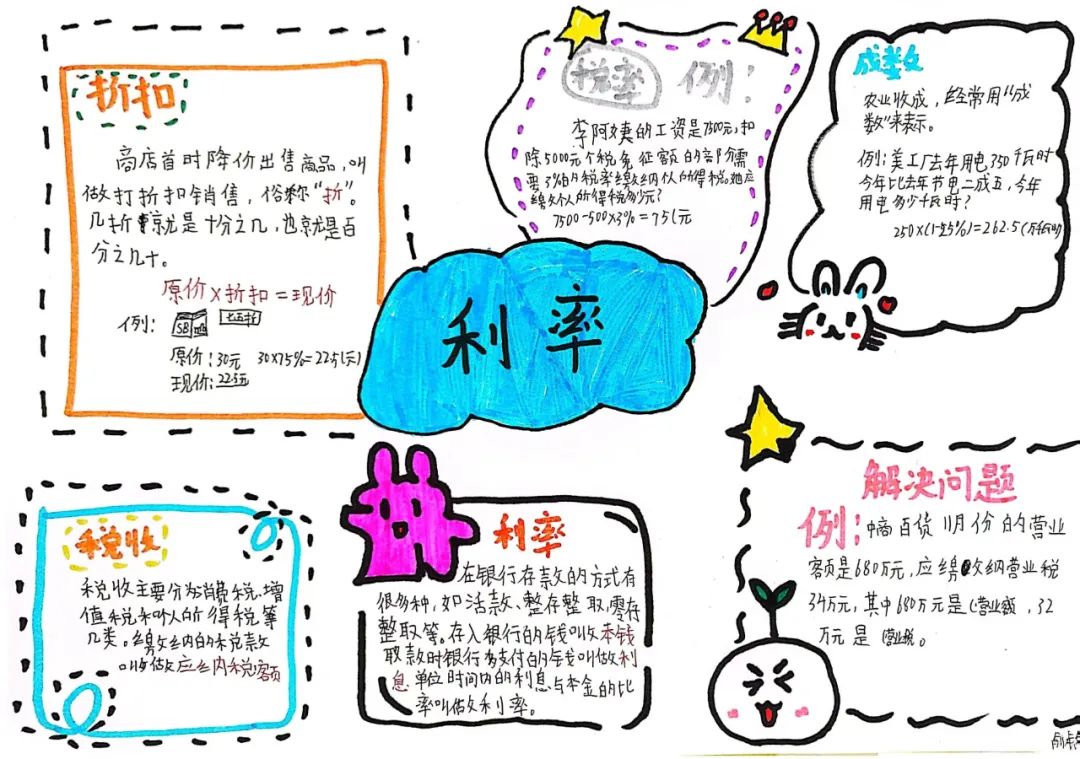 折扣
商店首时降价出售商品，叫
做打折扣销售，俗称“折”。
几折就是十分之几，也就是百
分之几十。
原价×折扣=现价
例：
七五折
原价：30元 30×75%=22.5(元)
现价：22.5元
税率 例：
李阿姨的工资是7500元，扣
除5000元个税免征额的部分需
要3%的税率缴纳个人所得税。她应
缴个人所得税多少元？
7500-500×3%=75(元
成数
农业收成，经常用“成
数”来表示。
例：美工厂去年用电350千瓦时
今年比去年节电二成五，今年
用电多少千瓦时？
250×(1-25%)=262.5(万千瓦时)
利率
税收
税收主要分为消费税、增
值税和个人所得税等
几类。缴纳的税款
叫做应纳税额
利率
在银行存款的方式有
很多种，如活款、整存整取，零存
整取等。存入银行的钱叫做本钱
取款时银行多支付的钱叫做利
息 单位时间内的利息与本金的比
率叫做利率。
解决问题
例：中商百货11月份的营业
额是680万元，应缴纳营业税
34万元，其中680万元是(营业额，32
万元是 (营业税。